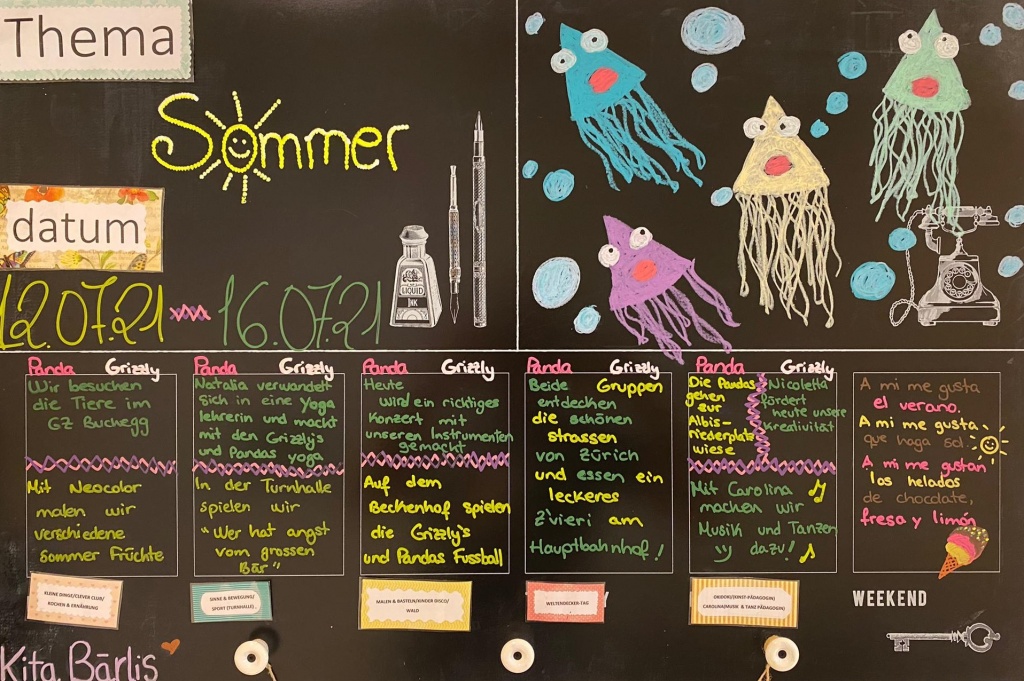 Thema
Sommer
datum
12.07.21 16.07.21
LIQUID
INK
Panda Grizzly
Wir besuchen
die Tiere im
GZ Buchegg
Mit Neocolor
malen wir
verschiedene
Sommer Früchte
KLEINE DINGE/CLEVER CLUB/
KOCHEN & ERNÄHRUNG
Panda Grizzly
Natalia verwandelt
sich in eine Yoga
lehrerin und macht
mit den Grizzly's
und Pandas yoga
In der Turnhalle
spielen wir
"Wer hat angst
vom grossen
Bär"
SINNE & BEWEGUNG/
SPORT (TURNHALLE)
Panda Grizzly
Heute
wird ein richtiges
Konzert mit
unseren Instrumenten
gemacht
Auf dem
Beckenhof spielen
die Grizzly's
und Pandas Fussball
MALEN & BASTELN/KINDER DISCO/
WALD
Panda Grizzly
Beide Gruppen
entdecken
die schönen
strassen
von Zürich
und essen ein
leckeres
Z'vieri am
Hauptbahnhof!
WELTENDECKER-TAG
Panda Grizzly
Die Pandas
gehen
zur
Albis-
riederplatz
wiese
Nicoletta
fördert
heute unsere
Kreativität
Mit Carolina
machen wir
Musik und Tanzen
dazu!
OKIDOKI/(KUNST-PÄDAGOGIN)
CAROLINA/MUSIK & TANZ PÄDAGOGIN)
A mi me gusta
el verano.
A mi me gusta
que haga sol.
A mi me gustan
los helados
de chocolate,
fresa y limón
WEEKEND
Kita Bärlis